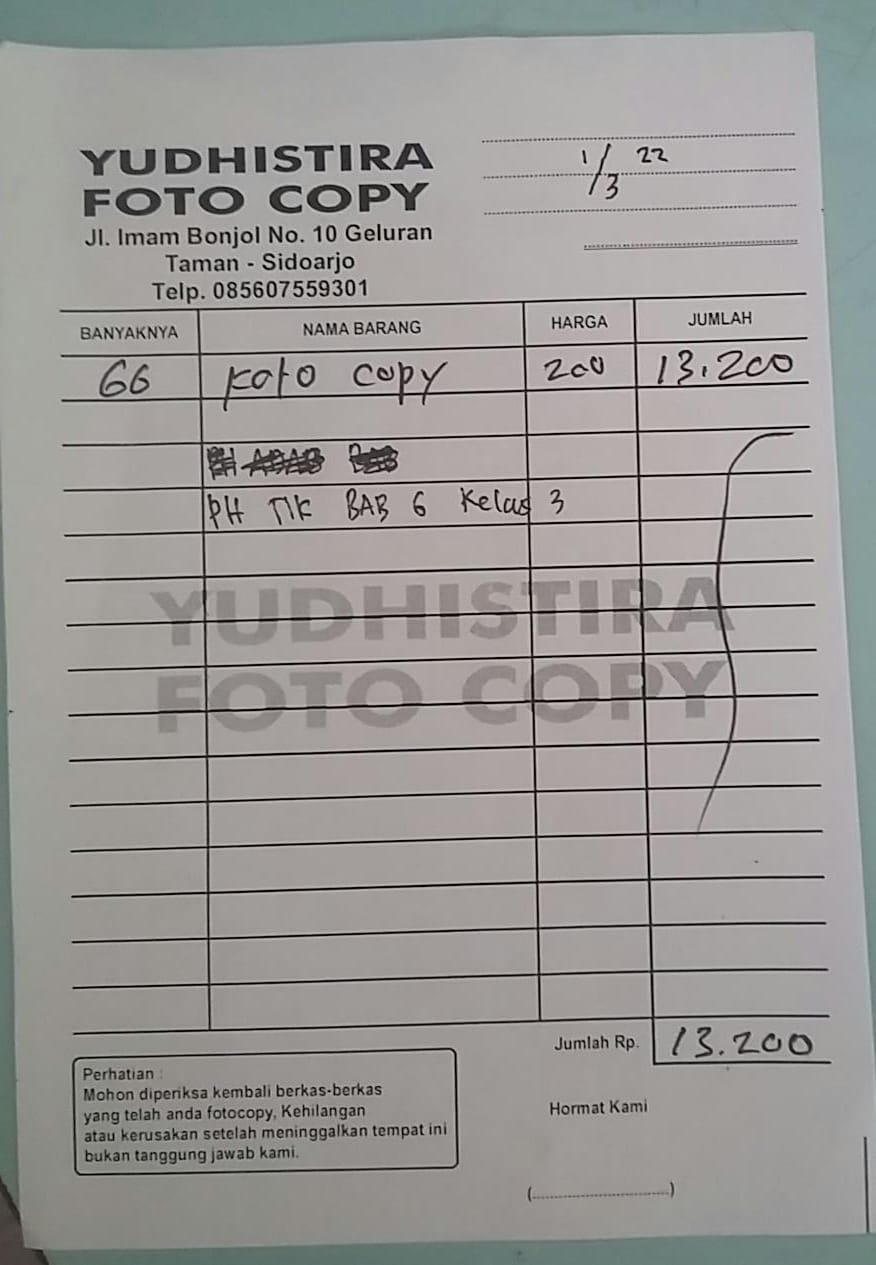 YUDHISTIRA
FOTO COPY
Jl. Imam Bonjol No. 10 Geluran
Taman - Sidoarjo
Telp. 085607559301
1/3 22
BANYAKNYA NAMA BARANG HARGA JUMLAH
66 Foto copy 200 13.200
PH TIK BAB 6 Kelas 3
YUDHISTIRA
FOTO COPY
Jumlah Rp. 13.200
Perhatian :
Mohon diperiksa kembali berkas-berkas
yang telah anda fotocopy, Kehilangan
atau kerusakan setelah meninggalkan tempat ini
bukan tanggung jawab kami.
Hormat Kami
(........................................)